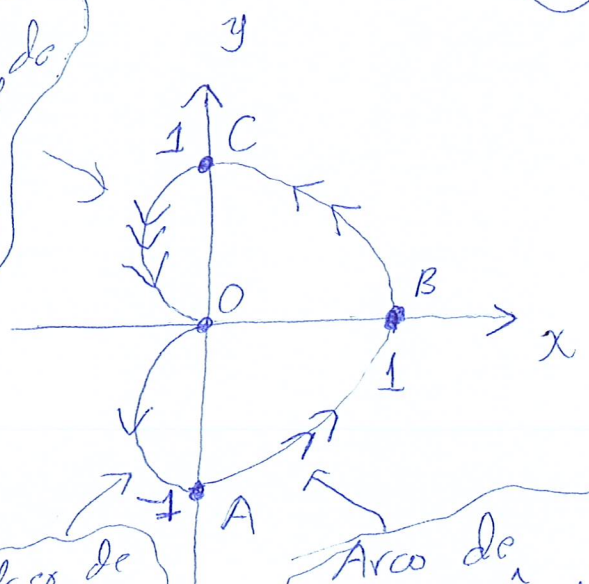 y
do
1 C
O
B
x
1
-1 A
de
Arco de